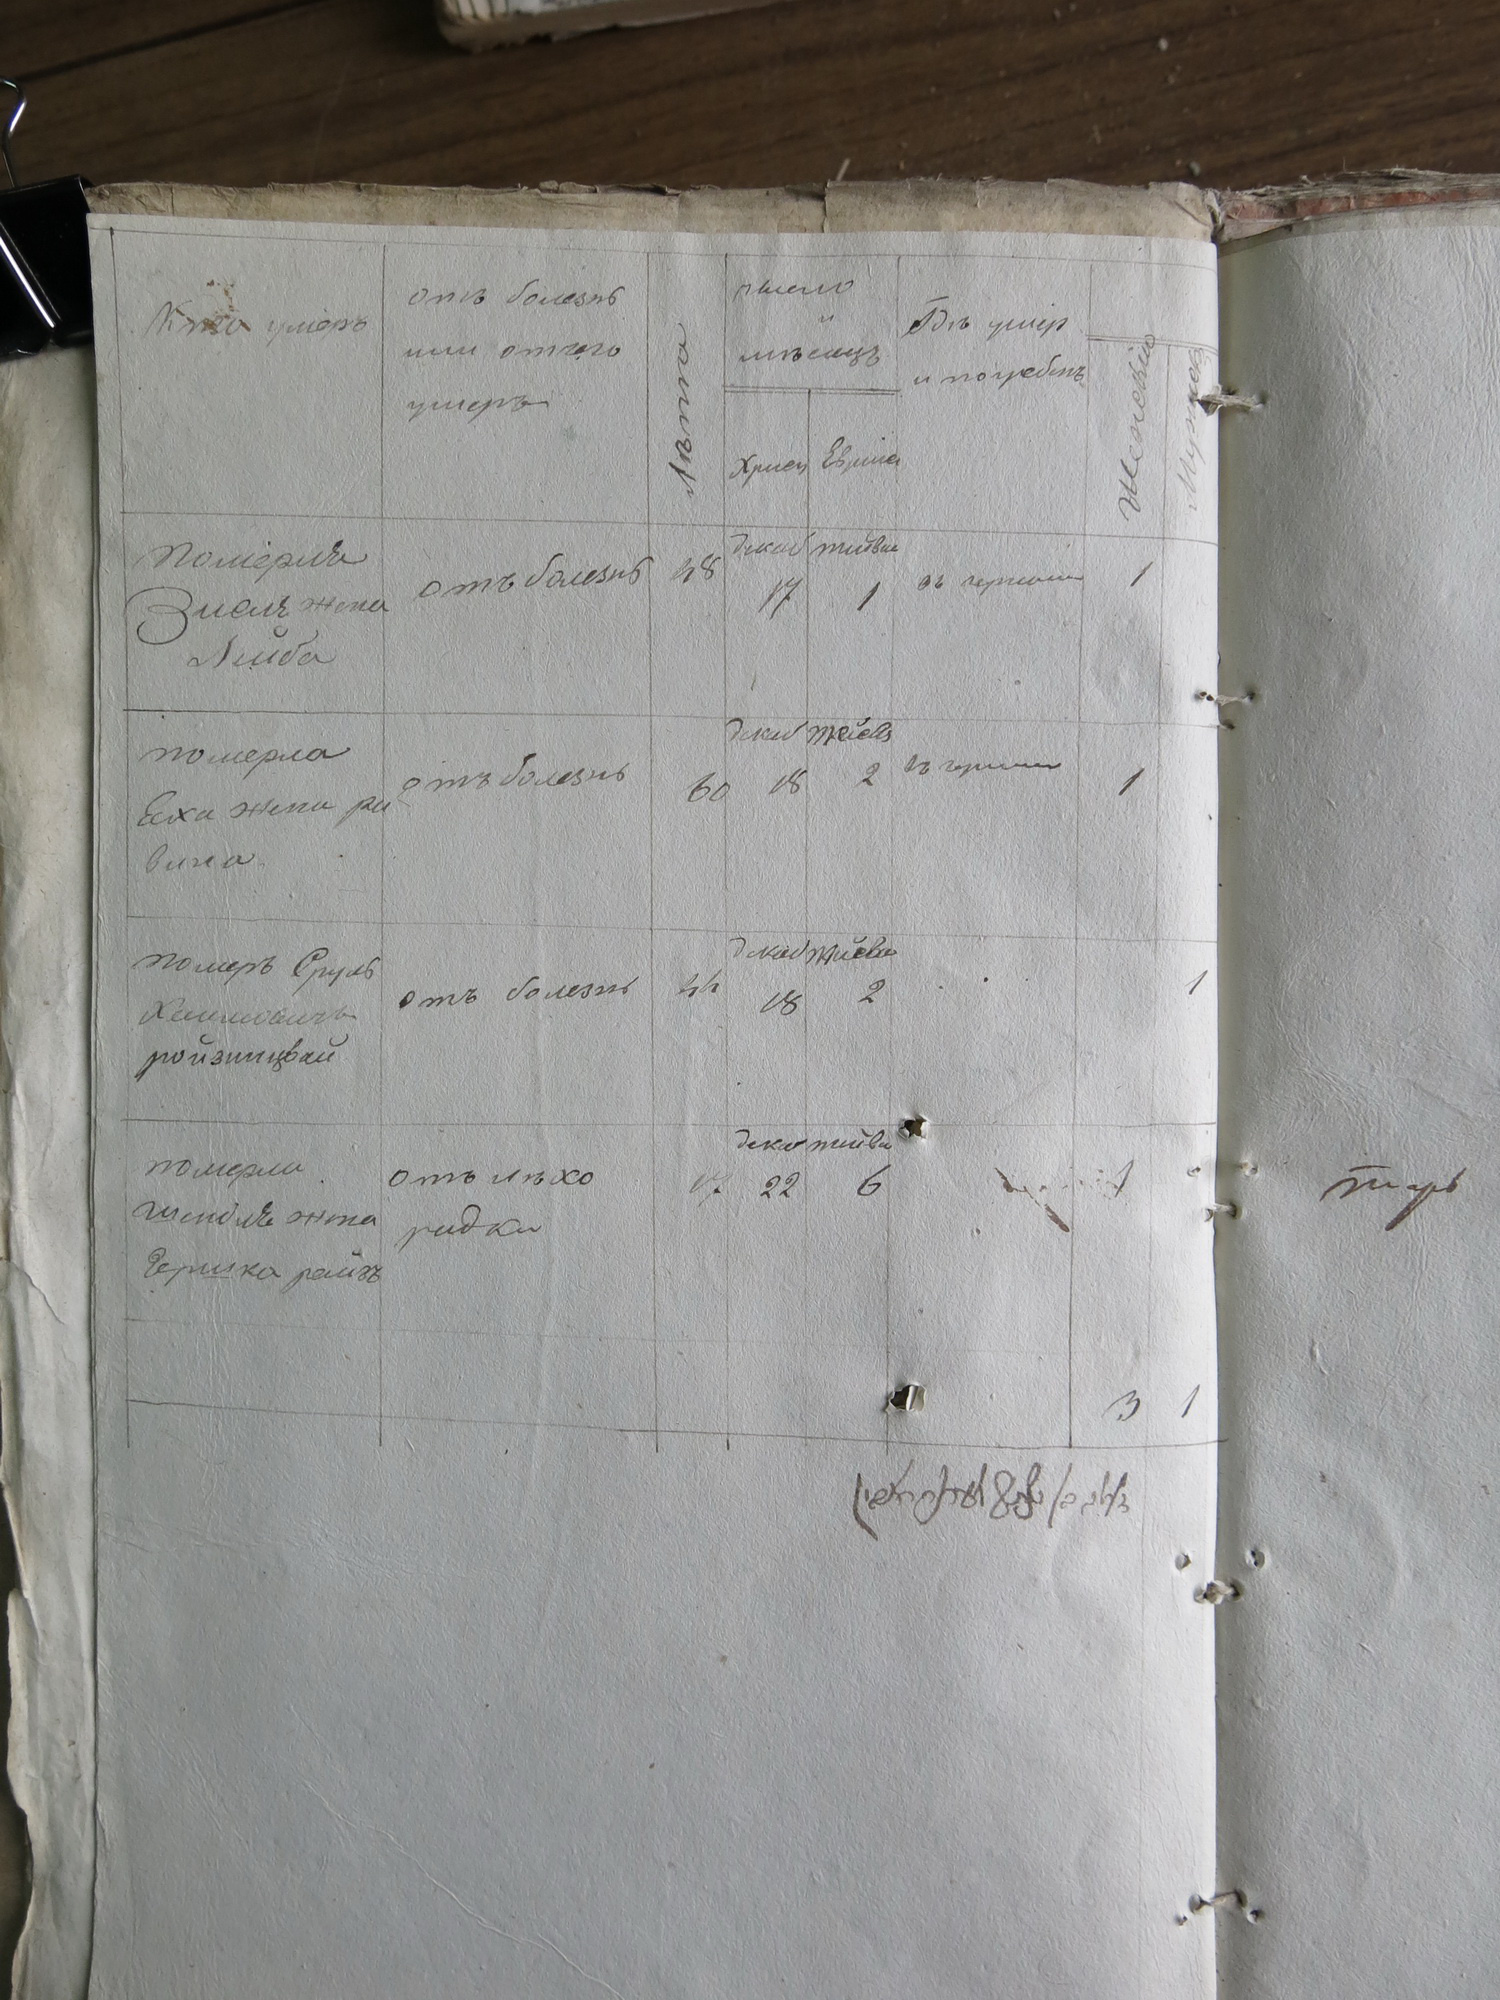 Кто умеръ
отъ болезнь
или отчего
умеръ
лѣта
число
и
мѣсяцъ
Христ Еврей
Гдѣ умер
и погребенъ
Женскій
Мужеск
померла
Зислѣ жена
Лейба
отъ болезнь
48
декаб
17
тейвес
1
въ
1
померла
жена ра
вина
отъ болезнь
60
декаб
18
тейвъ
2
въ
1
померъ Сруль
Хаимовичъ
ройзинцвай
отъ болезнь
44
декаб
18
тейве
2
1
померла
Шейндлѣ жена
Гершка
отъ лѣхо
радки
дека
22
тейве
6
1
3 1
тарь